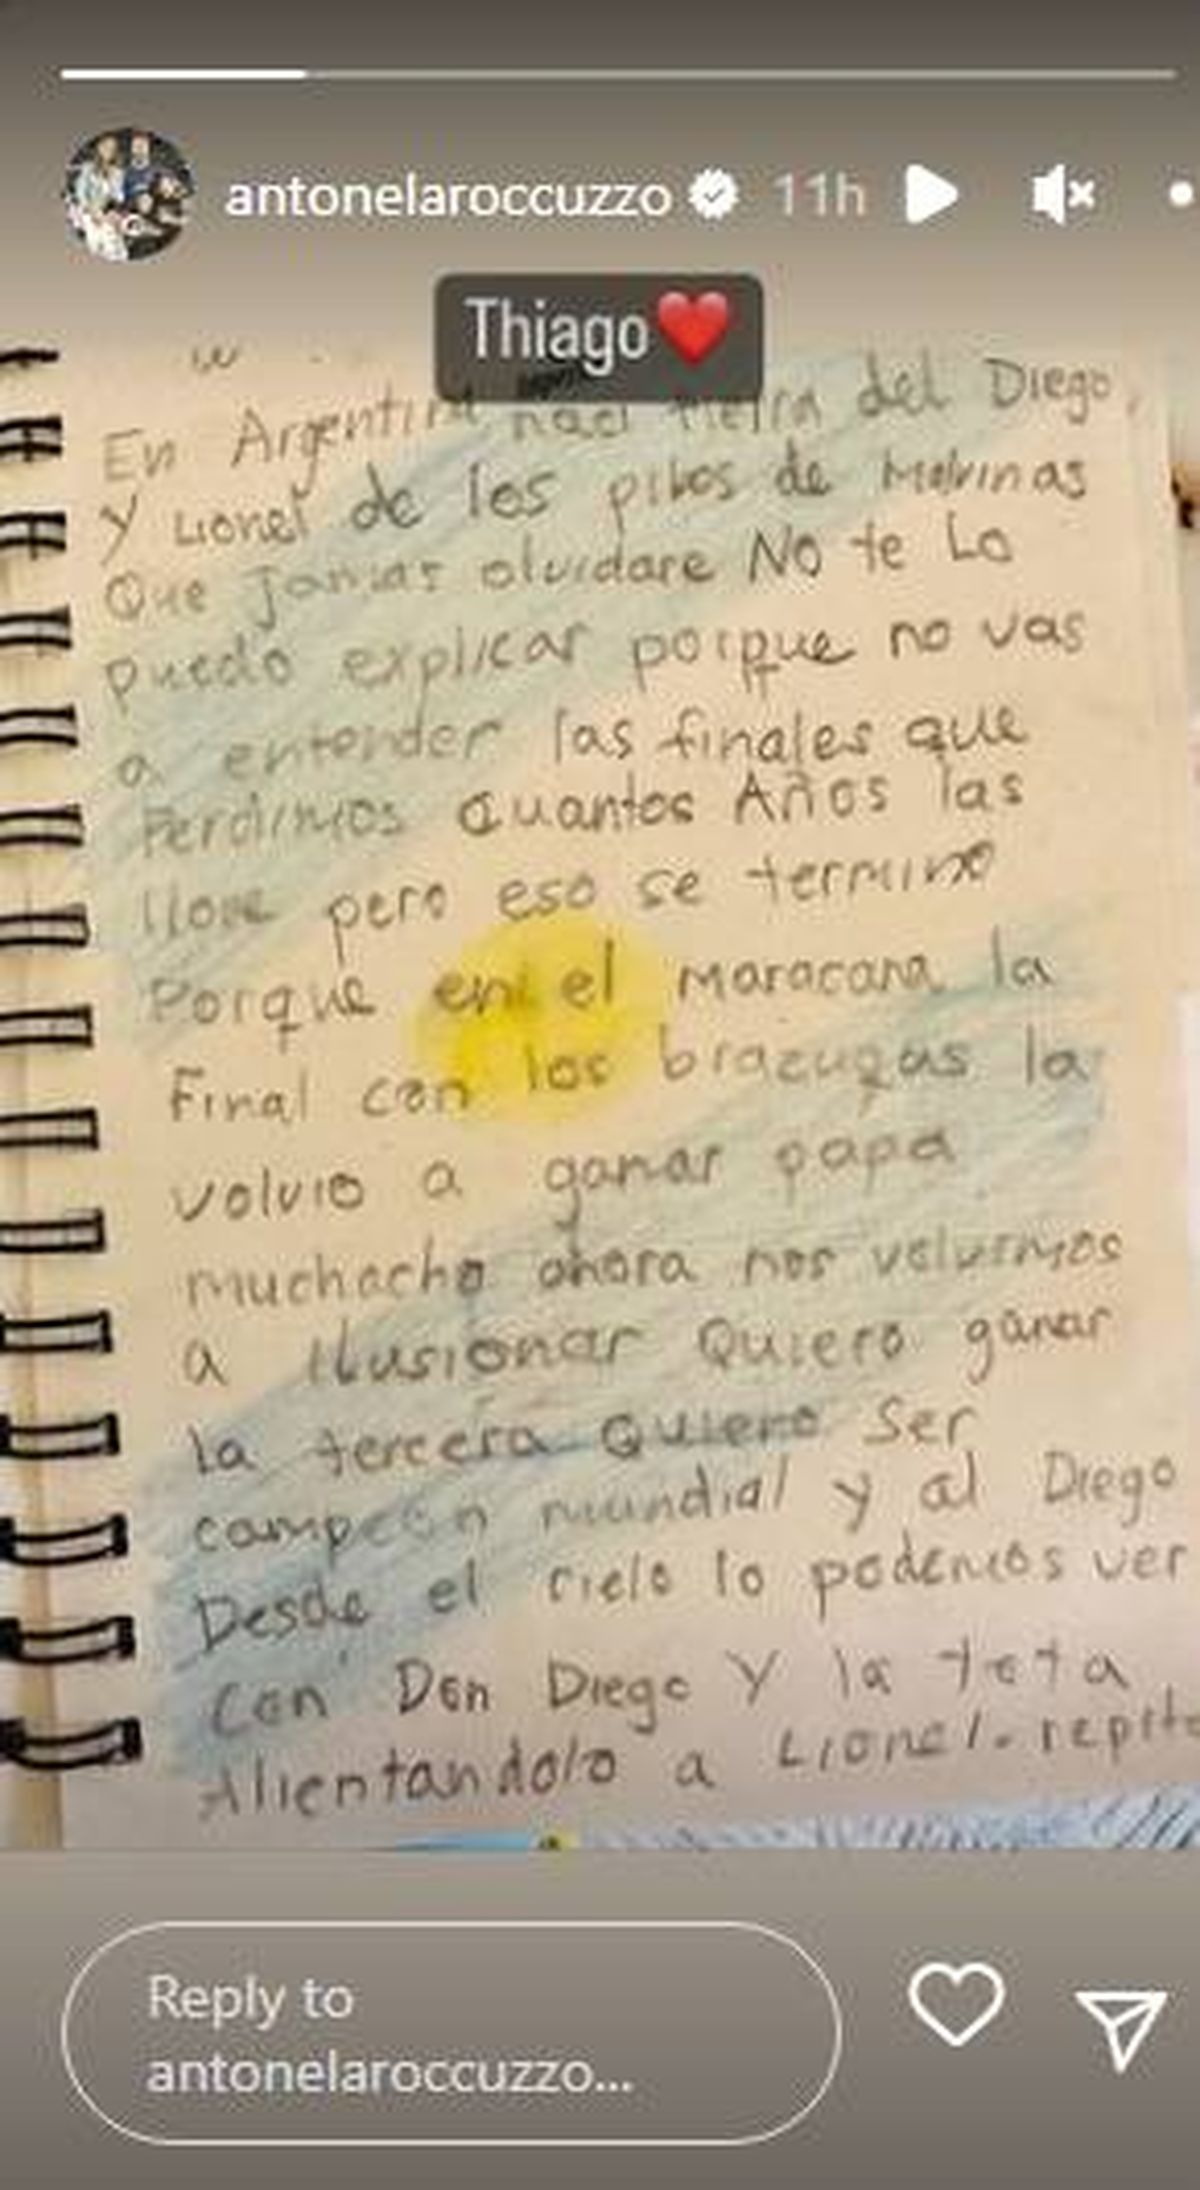 antonelaroccuzzo 11h
Thiago❤️
En Argentina naci tierra del Diego
Y Lionel de los pibes de Malvinas
Que Jamas olvidare No te Lo
puedo explicar porque no vas
a entender las finales que
Perdimos Quantos Años las
llore pero eso se termino
Porque en el Maracana la
Final con los brazugas la
volvio a ganar papa
muchacho ahora nos volvimos
a Ilusionar Quiero ganar
la tercera Quiero Ser
campeon mundial y al Diego
Desde el cielo lo podemos ver
con Don Diego Y la tota
Alientandolo a Lionel. repito
Reply to
antonelaroccuzzo...